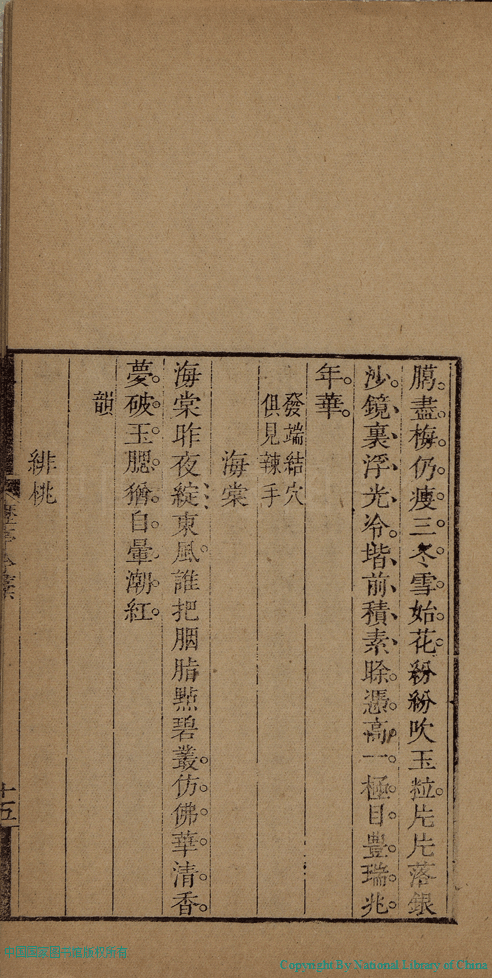 臈盡梅仍瘦三冬雪始花紛紛吹玉粒片片落銀
沙鏡裏浮光冷堦前積素賒憑高一極目豊瑞兆
年華
發端結穴
俱見辣手
海棠
海棠昨夜綻東風誰把胭脂點碧叢仿佛華清香
夢破玉腮猶自暈潮紅
韻
緋桃
十五
中国国家图书馆版权所有
Copyright By National Library of China